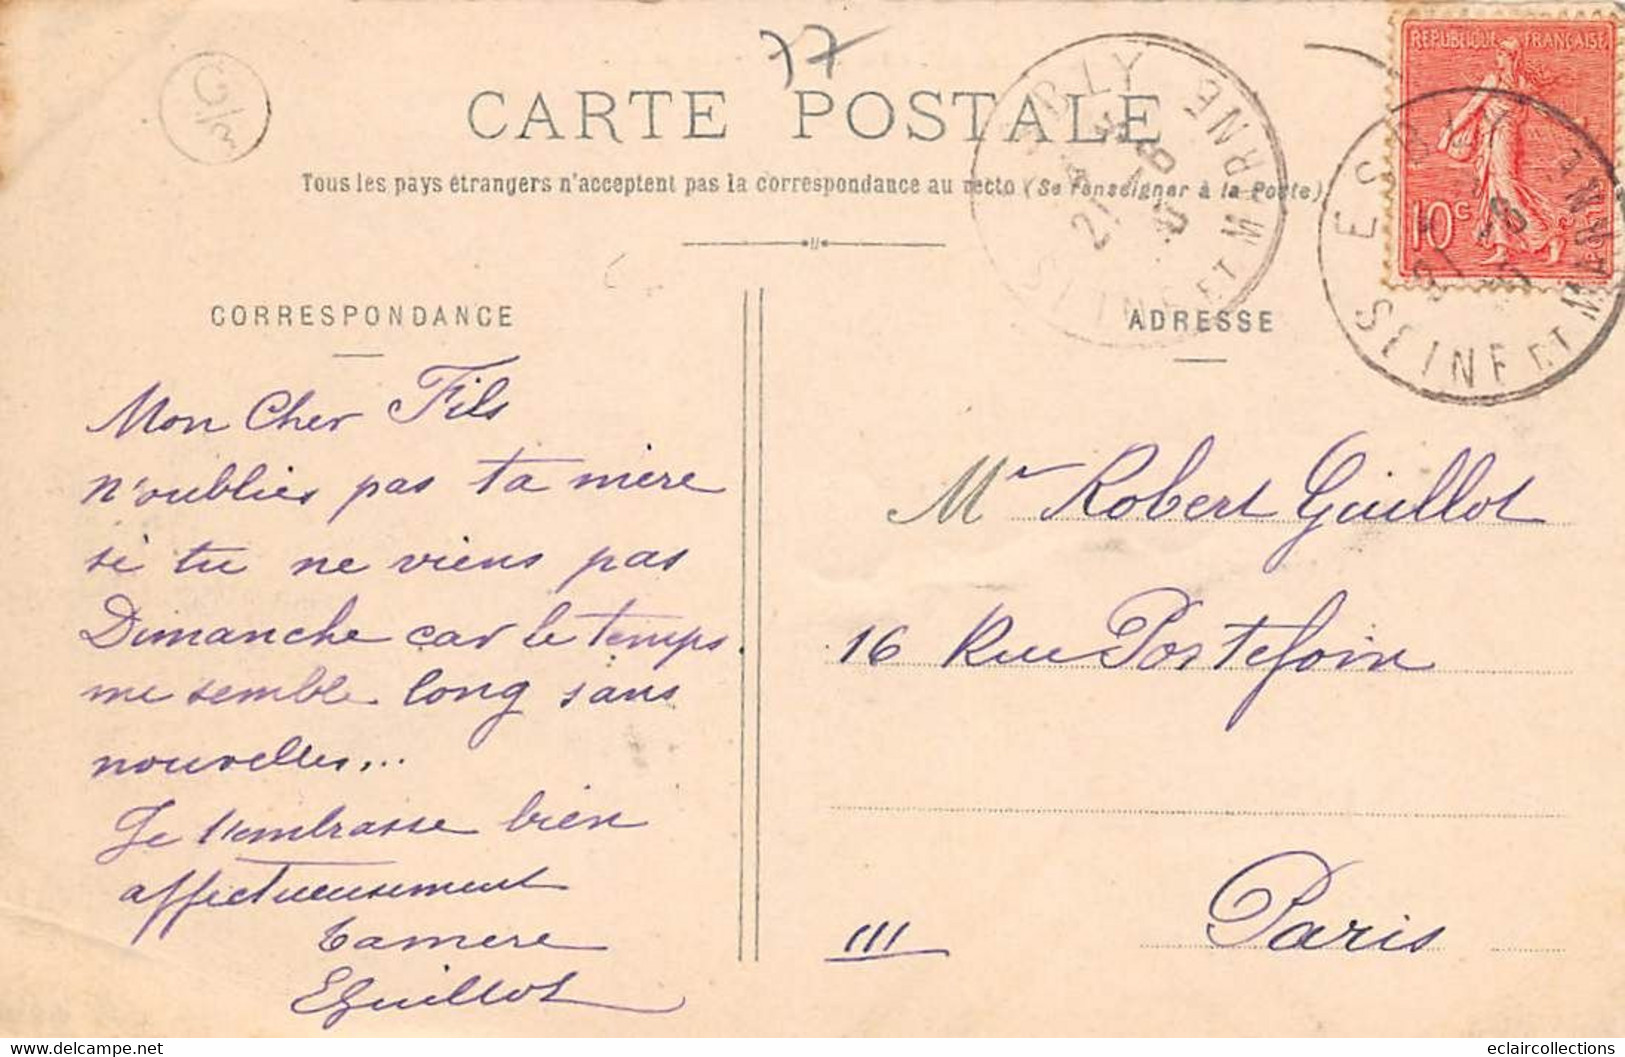 77
G/3
CARTE POSTALE
Tous les pays étrangers n'acceptent pas la correspondance au recto (Se renseigner à la Poste)
REPUBLIQUE FRANÇAISE
10c
ESBLY
SEINE ET MARNE
ESBLY
SEINE ET MARNE
CORRESPONDANCE
Mon Cher Fils
n'oublies pas ta mère
si tu ne viens pas
Dimanche car le temps
me semble long sans
nouvelles...
Je t'embrasse bien
affectueusement
ta mere
EGuillot
ADRESSE
Mr Robert Guillot
16 Rue Portefoin
Paris
https://www.delcampe.net
eclaircollections